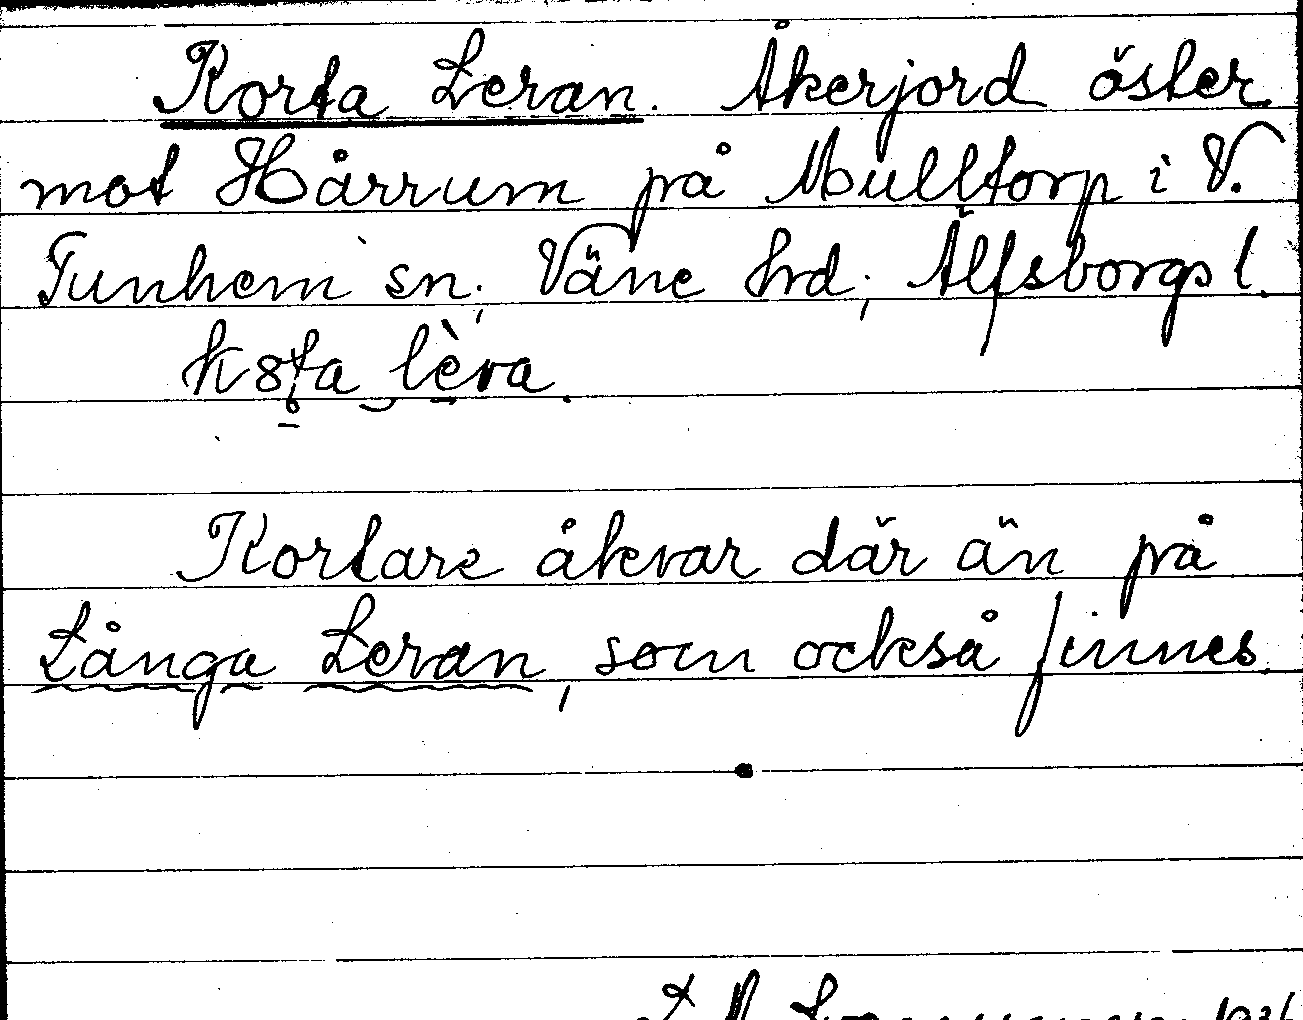 Korta Leran. Åkerjord öster
mot Hårrum på Mulltorp i V.
Tunhem sn; Väne hrd; Älfsborgs l.
k8ta lèra.
Kortare åkrar där än på
Långa Leran, som också finnes.